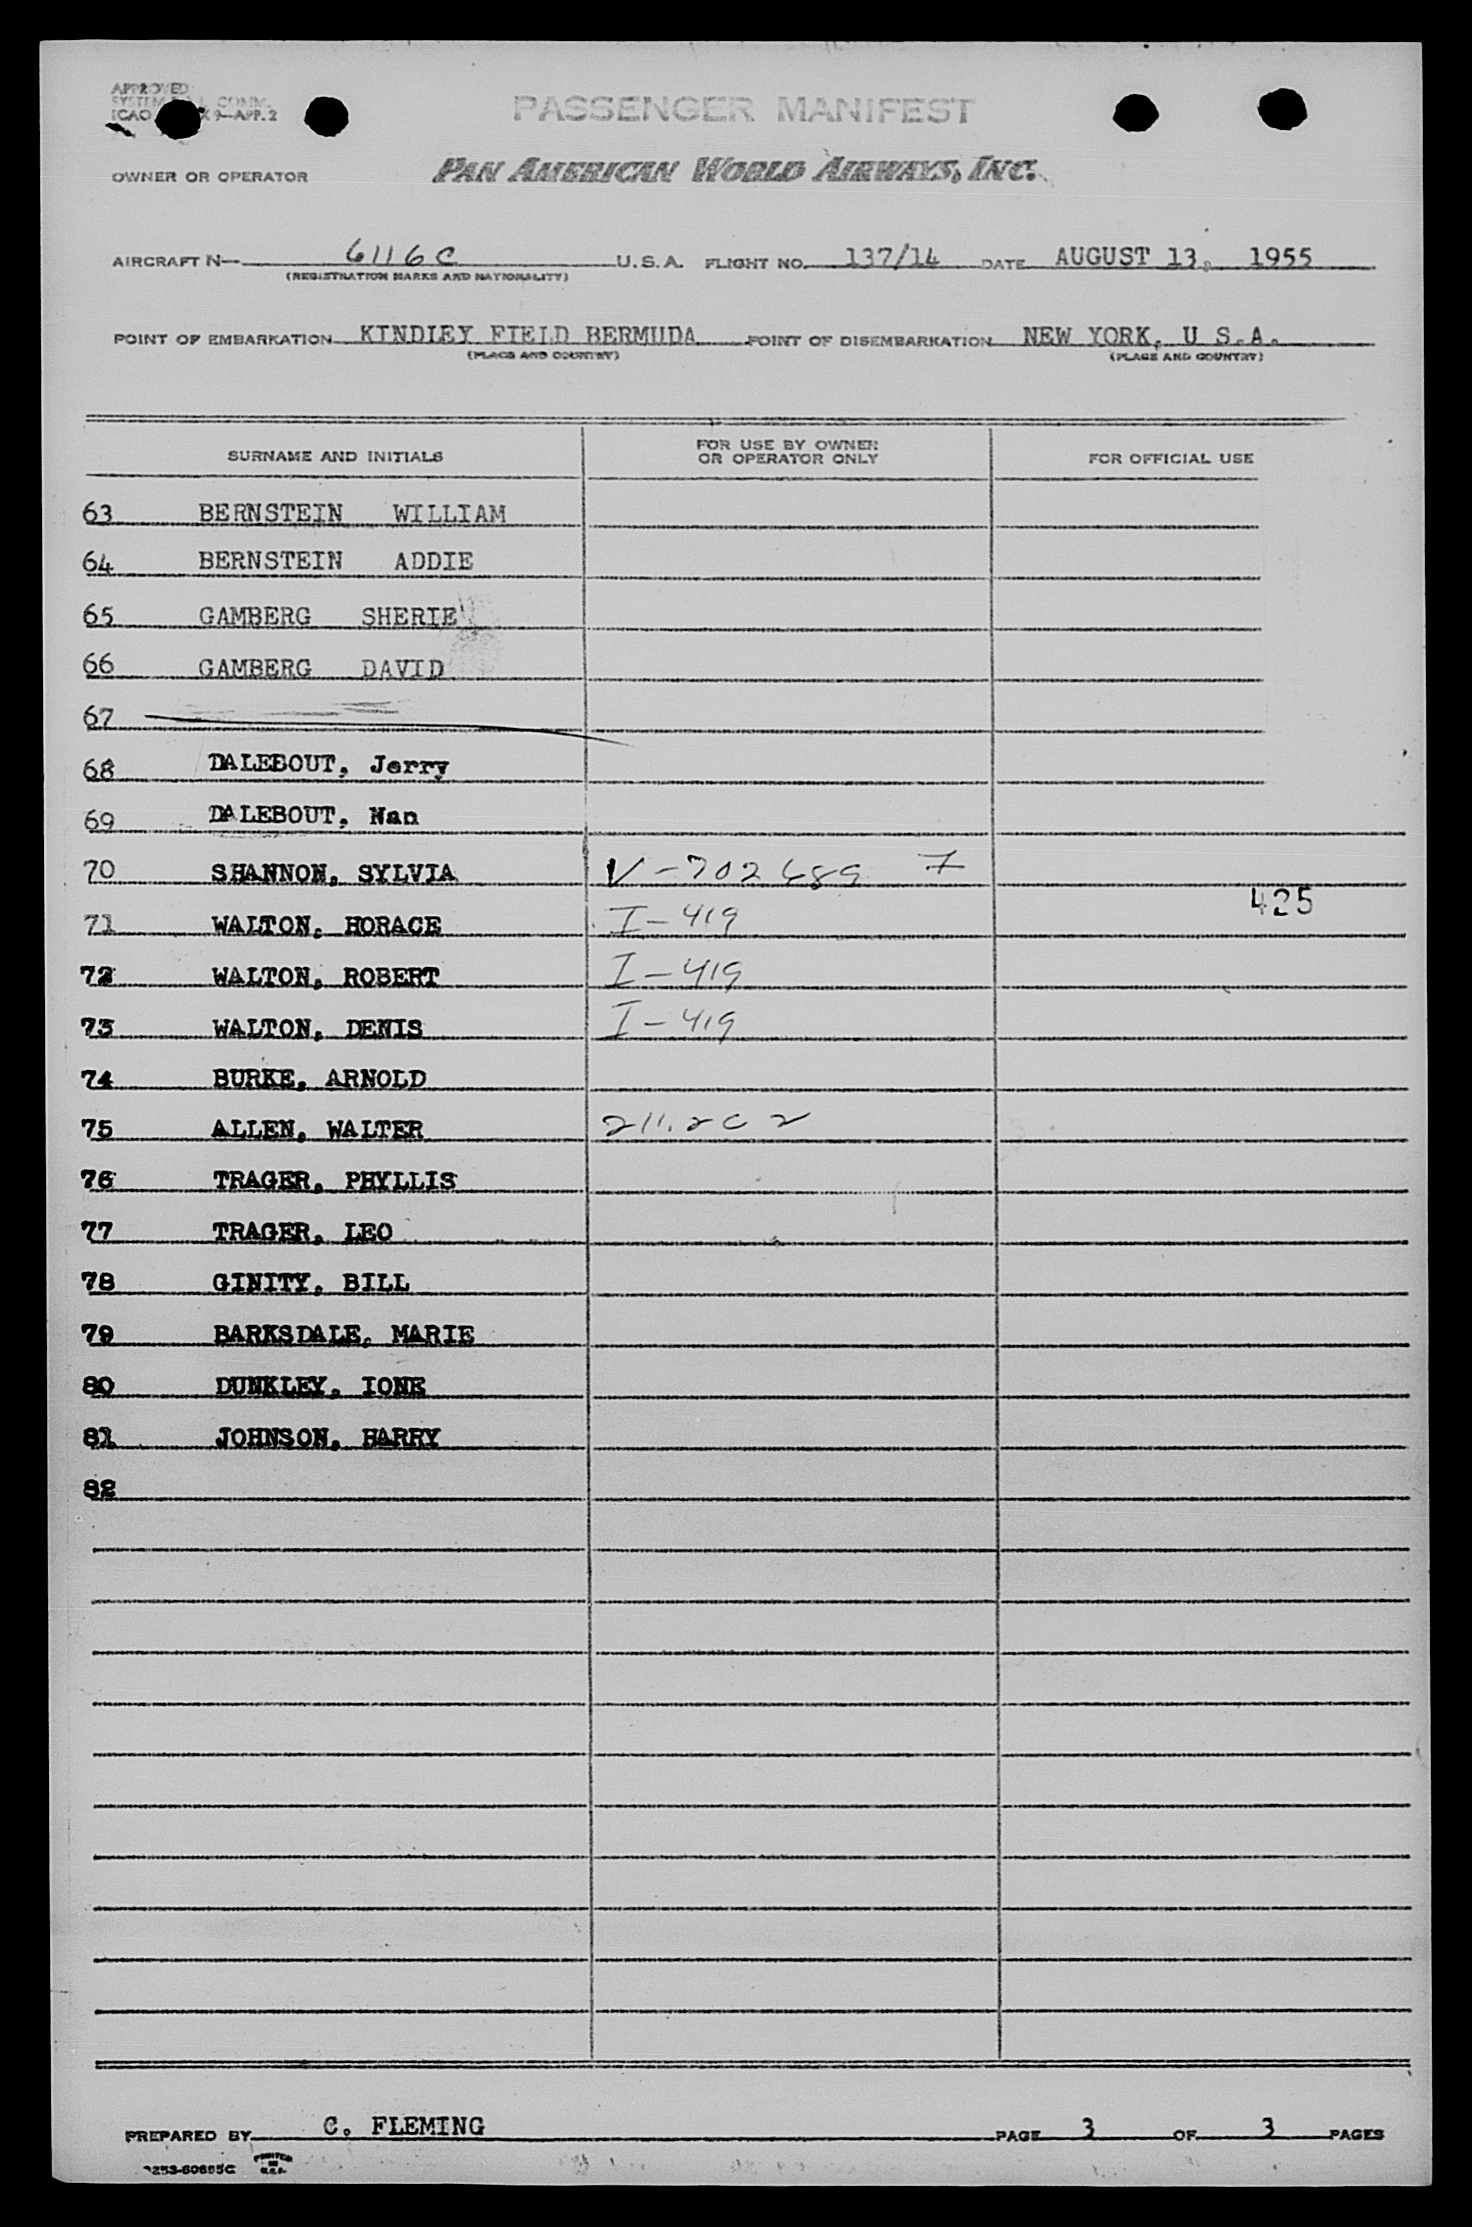 APPROVED
ICAO 9—APP. 2
PASSENGER MANIFEST
OWNER OR OPERATOR PAN AMERICAN WORLD AIRWAYS, INC.
AIRCRAFT N— 6116C U.S.A. FLIGHT NO. 137/14 DATE AUGUST 13, 1955
(REGISTRATION MARKS AND NATIONALITY)
POINT OF EMBARKATION KINDLEY FIELD BERMUDA POINT OF DISEMBARKATION NEW YORK, U S.A.
(PLACE AND COUNTRY) (PLACE AND COUNTRY)
SURNAME AND INITIALS FOR USE BY OWNER OR OPERATOR ONLY FOR OFFICIAL USE
63 BERNSTEIN WILLIAM
64 BERNSTEIN ADDIE
65 GAMBERG SHERIE
66 GAMBERG DAVID
67
68 DALEBOUT, Jerry
69 DALEBOUT, Nan
70 SHANNON, SYLVIA V-702689 7
425
71 WALTON, HORACE I-419
72 WALTON, ROBERT I-419
73 WALTON, DENIS I-419
74 BURKE, ARNOLD
75 ALLEN, WALTER
76 TRAGER, PHYLLIS
77 TRAGER, LEO
78 GINITY, BILL
79 BARKSDALE, MARIE
80 DUNKLEY, IONE
81 JOHNSON, HARRY
82
PREPARED BY C. FLEMING PAGE 3 OF 3 PAGES
PRINTED IN U.S.A.